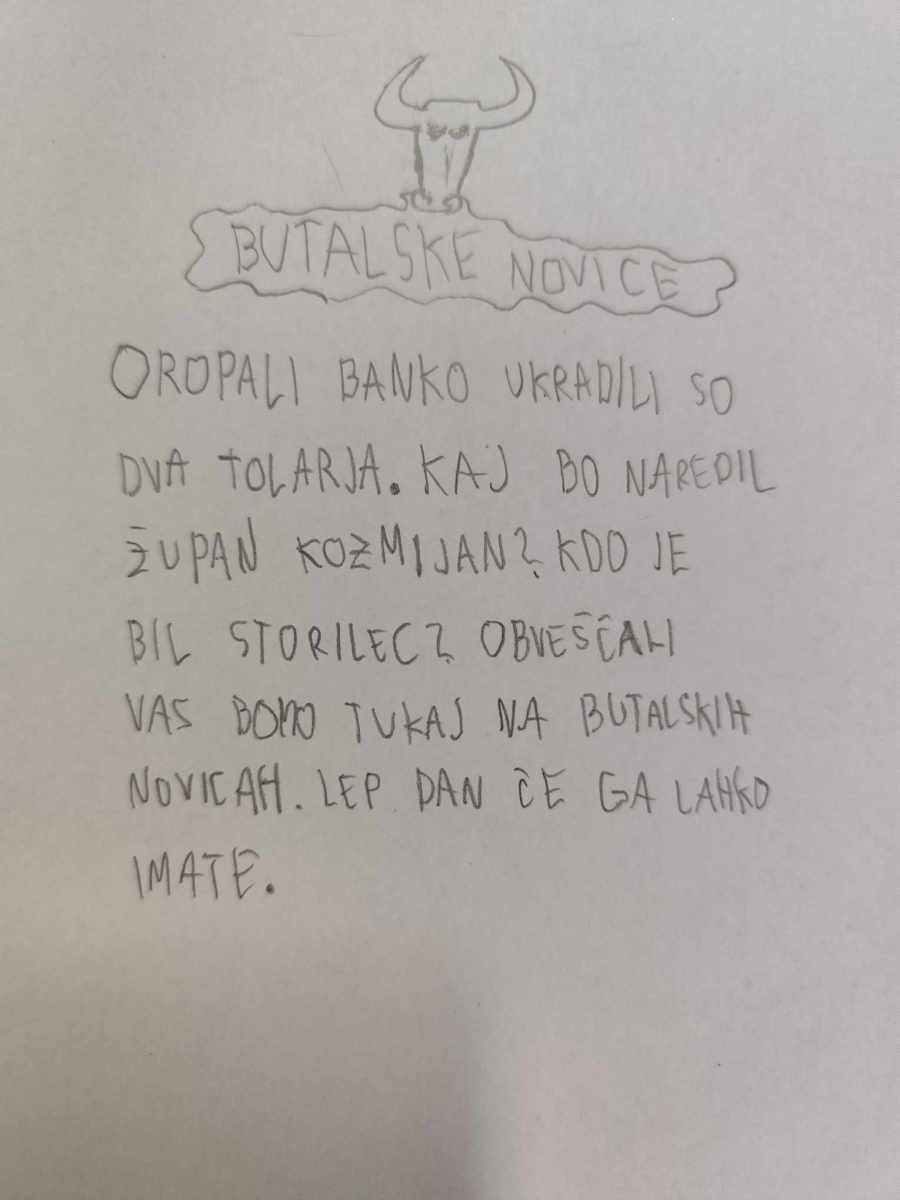 BUTALSKE NOVICE
OROPALI BANKO UKRADILI SO
DVA TOLARJA. KAJ BO NAREDIL
ŽUPAN KOZMIJAN? KDO JE
BIL STORILEC? OBVEŠČALI
VAS BOMO TUKAJ NA BUTALSKIH
NOVICAH. LEP DAN ČE GA LAHKO
IMATE.